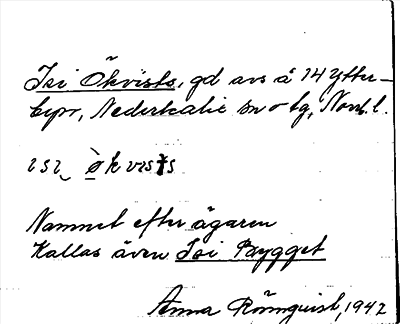 Isi Økvists, gd avs å 14 Ytter-
byn, Nederkalix sn o tg, Norrb. l.
ɩsɩ ø̀kvɩsts
Namnet efter ägaren
Kallas även Isi Brygget
Anna Rönnquist, 1942